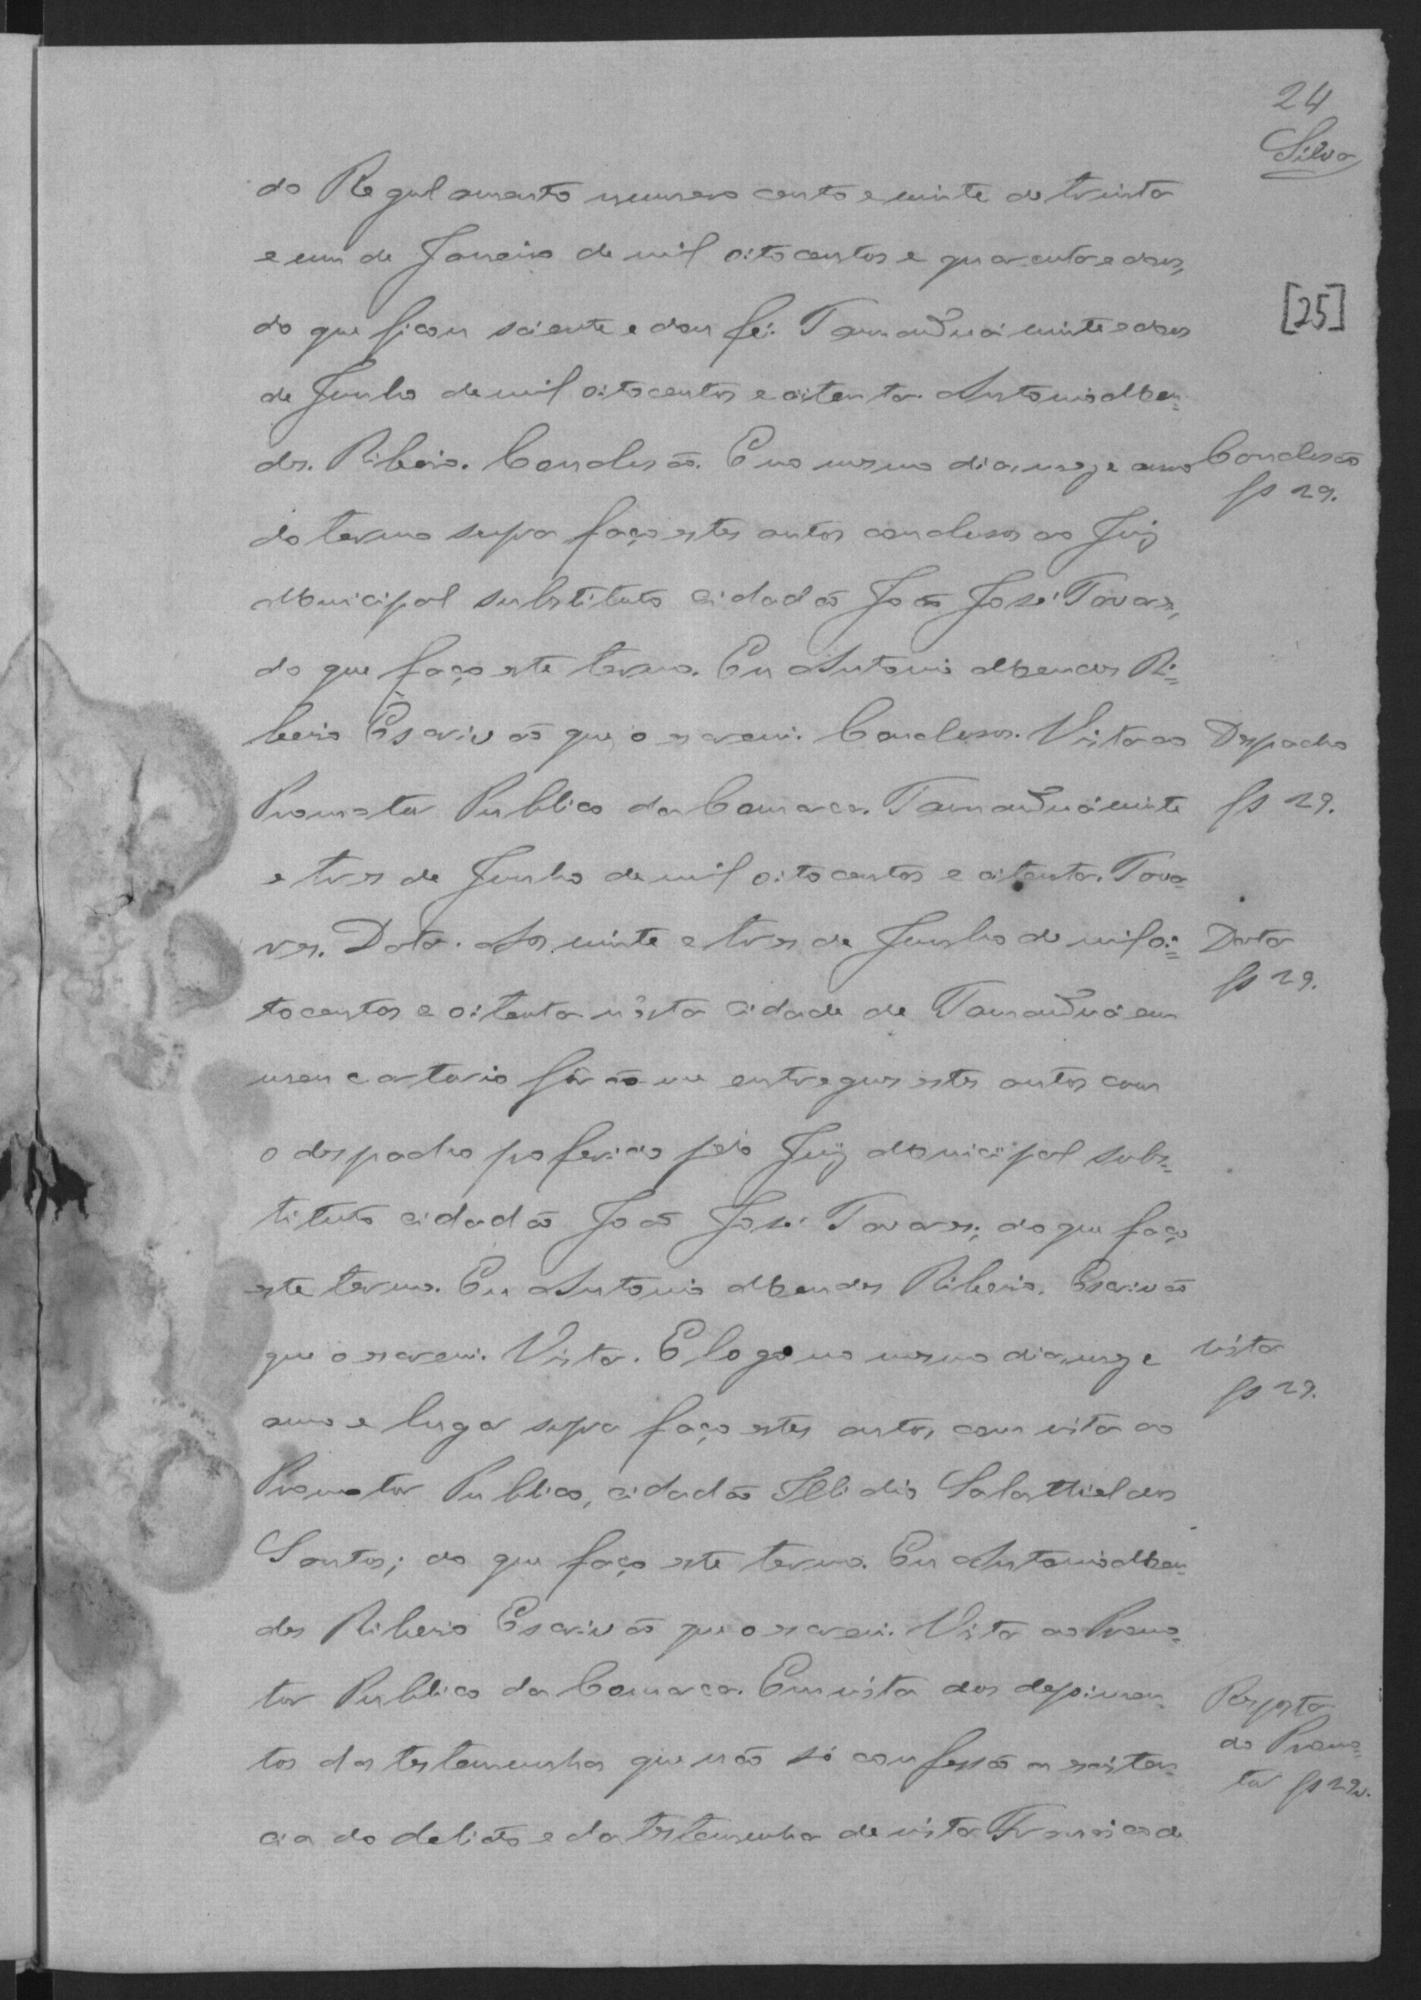 24
Silva
do Regulamento numero cento e vinte de trinta
e um de Janeiro de mil oitocentos e quarenta e dous,
[25]
do que ficou sciente e dou fé. Tamanduá vinte e dous
de Junho de mil oitocentos e oitenta. Antonio Men=
des Ribeiro. Conclusão. E no mesmo dia, mez e anno
Conclusão
fs 29.
do termo supra faço estes autos conclusos ao Juiz
Municipal substituto cidadão João José Tavares,
do que faço este termo. Eu Antonio Mendes Ri=
beiro Escrivão que o escrevi. Conclusos. Vista ao
Despacho
fs 29.
Promotor Publico da Comarca. Tamanduá vinte
e tres de Junho de mil oitocentos e oitenta. Tava=
res. Data. Aos vinte e tres de Junho de mil oi=
Data
fs 29.
tocentos e oitenta n'esta cidade de Tamanduá em
meu cartorio forão me entregues estes autos com
o despacho proferido pelo Juiz Municipal subs=
tituto cidadão João José Tavares; do que faço
este termo. Eu Antonio Mendes Ribeiro. Escrivão
que o escrevi. Vista. E logo no mesmo dia, mez e
Vista
fs 29.
anno e lugar supra faço estes autos com vista ao
Promotor Publico, cidadão Elidio Salathiel dos
Santos; do que faço este termo. Eu Antonio Men=
des Ribeiro Escrivão que o escrevi. Vista ao Promo=
tor Publico da Comarca. Em vista dos depoimen=
Resposta
do Promo=
tor fs 29v.
tos das testemunhas que não só confessão a existen=
cia do delicto e da testemunha de vista Francisco de